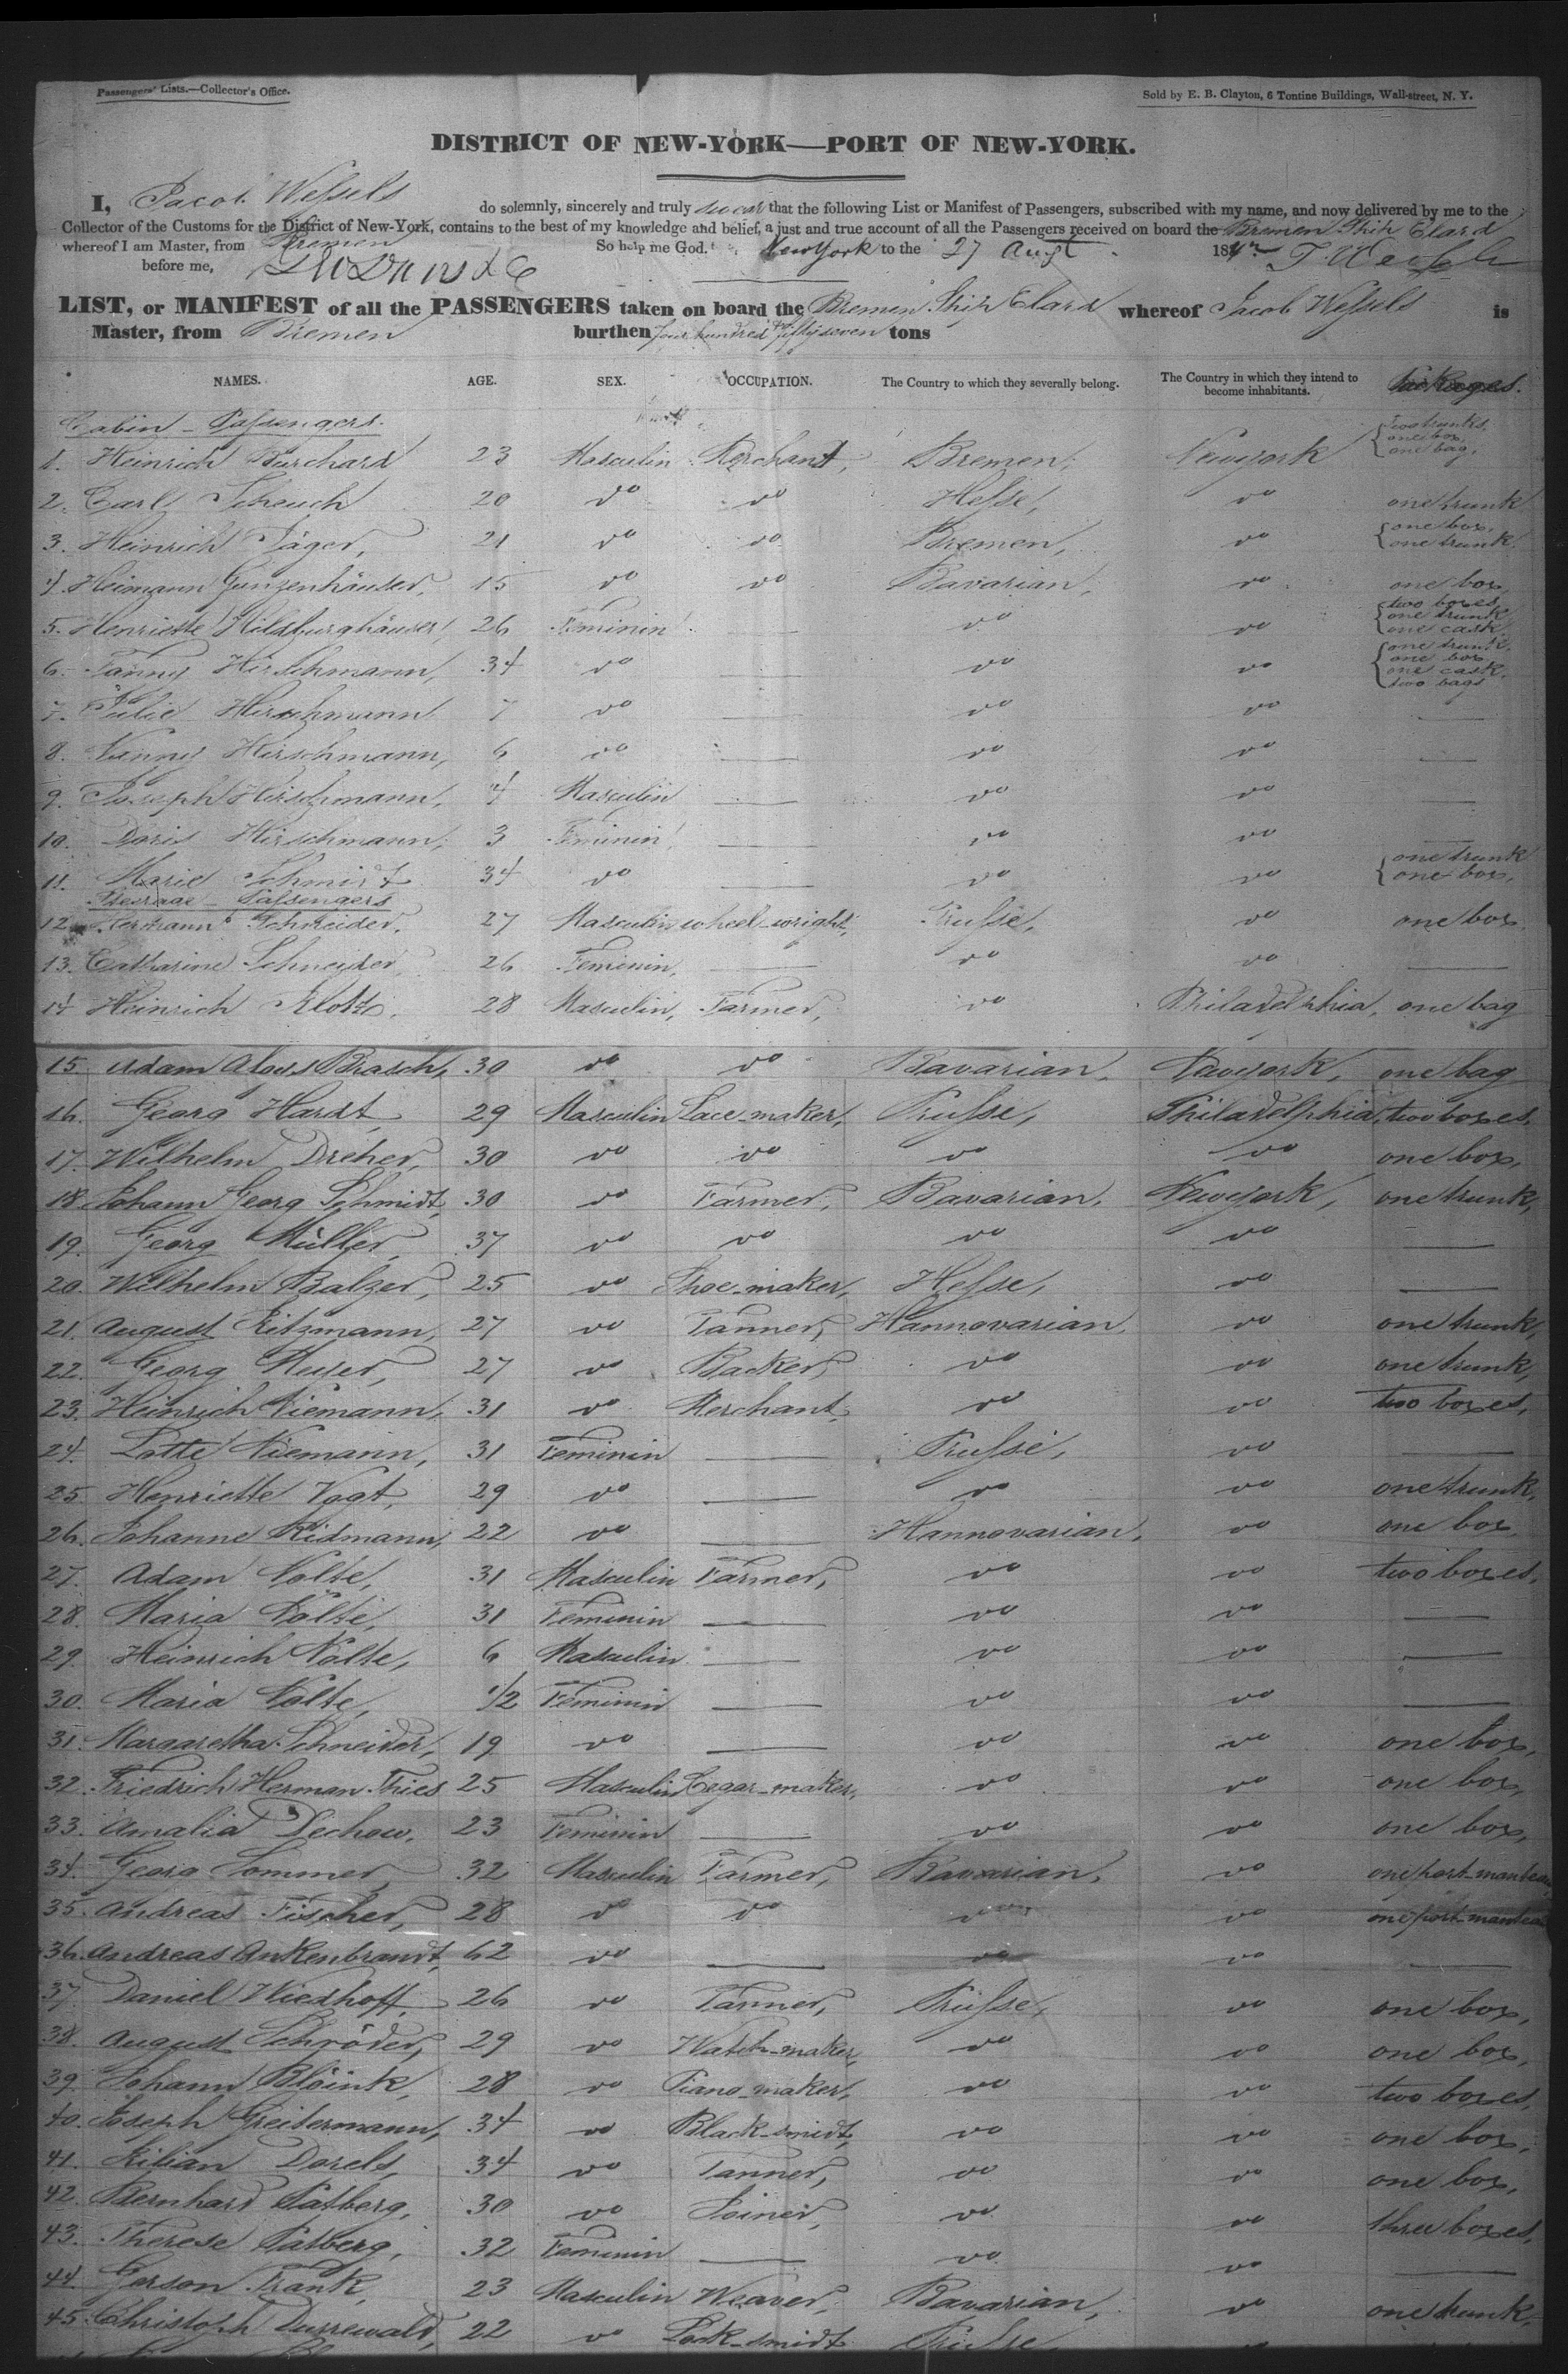 Passengers' Lists.—Collector's Office.
Sold by E. B. Clayton, 6 Tontine Buildings, Wall-street, N. Y.
DISTRICT OF NEW-YORK—PORT OF NEW-YORK.
I, Jacob Wessels do solemnly, sincerely and truly swear that the following List or Manifest of Passengers, subscribed with my name, and now delivered by me to the
Collector of the Customs for the District of New-York, contains to the best of my knowledge and belief, a just and true account of all the Passengers received on board the Bremen Ship Elard
whereof I am Master, from Bremen So help me God. New York to the 27 Augst 184
before me, J. Wessels
LIST, or MANIFEST of all the PASSENGERS taken on board the Bremen Ship Elard whereof Jacob Wessels is
Master, from Bremen burthen four hundred & fifty seven tons
NAMES. AGE. SEX. OCCUPATION. The Country to which they severally belong. The Country in which they intend to become inhabitants.
Cabin - Passengers.
1. Heinrich Burchard 23 Masculin Merchant, Bremen, Newyork two trunks, one box, one bag,
2. Carl Scheuch 20 do do Hesse, do one trunk
3. Heinrich Jäger, 21 do do Bremen, do one box, one trunk.
4. Heimann Gunzenhäuser, 15 do do Bavarian, do one box
5. Henriette Hildburghäuser, 26 Feminin — do do two boxes, one trunk one cask
6. Fanny Hirschmann, 34 do do do one trunk, one box one cask, two bags
7. Julie Hirschmann 7 do do do —
8. Nanny Hirschmann, 6 do — do do —
9. Joseph Hirschmann, 4 Masculin — do do —
10. Doris Hirschmann, 3 Feminin — do do —
11. Marie Schmidt 34 do — do do one trunk one box,
Steerage - Passengers
12. Hermann Schneider, 27 Masculin wheel-wright, Prusse, do one box
13. Catharine Schneider 26 Feminin, — do do —
14 Heinrich Klotz, 28 Masculin, Farmer, do Philadelphia, one bag
15. Adam Alois Brasch, 30 do do Bavarian, Newyork, one bag
16. Georg Hardt, 29 Masculin Lace-maker, Prusse, Philadelphia, two boxes,
17. Wilhelm Dreher, 30 do do do do one box,
18. Johann Georg Schmidt, 30 do Farmer, Bavarian, Newyork, one trunk,
19. Georg Müller, 37 do do do do —
20. Wilhelm Balzer, 25 do Shoe-maker, Hesse, do —
21. August Eitzmann, 27 do Tanner, Hannovarian, do one trunk,
22. Georg Meyer, 27 do Backer, do do one trunk,
23. Heinrich Niemann, 31 do Merchant, do do two boxes,
24. Lotte Niemann, 31 Feminin — Prusse, do —
25. Henriette Vogt, 29 do — do do one trunk,
26. Johanne Ridmann, 22 do — Hannovarian, do one box
27. Adam Nolte, 31 Masculin Farmer, do do two boxes,
28. Maria Nolte, 31 Feminin — do do —
29. Heinrich Nolte, 6 Masculin — do do —
30. Maria Nolte, 1/2 Feminin — do do —
31. Margaretha Schneider, 19 do — do do one box,
32. Friedrich Herman Thies 25 Masculin Cegar-maker, do do one box,
33. Amalia Dechow, 23 Feminin — do do one box,
34. Georg Sommer 32 Masculin Farmer, Bavarian, do one port-manteau,
35. Andreas Fischer, 28 do do do do one port-manteau
36. Andreas Ankenbrandt, 62 do — do do —
37. Daniel Wiedhoff, 26 do Tanner, Prusse, do one box,
38. August Schröder, 29 do Watch-maker, do do one box,
39. Johann Blöink, 28 do Piano-maker, do do two boxes,
40. Joseph Greitermann, 34 do Black-smidt, do do one box,
41. Kilian Dorels, 34 do Tanner, do do one box,
42. Bernhard Patberg, 30 do Joiner, do do three boxes,
43. Therese Patberg, 32 Feminin — do do —
44. Gerson Frank, 23 Masculin Weaver, Bavarian, do one trunk,
45. Christoph Durrewald, 22 do Lock-smidt Prusse,